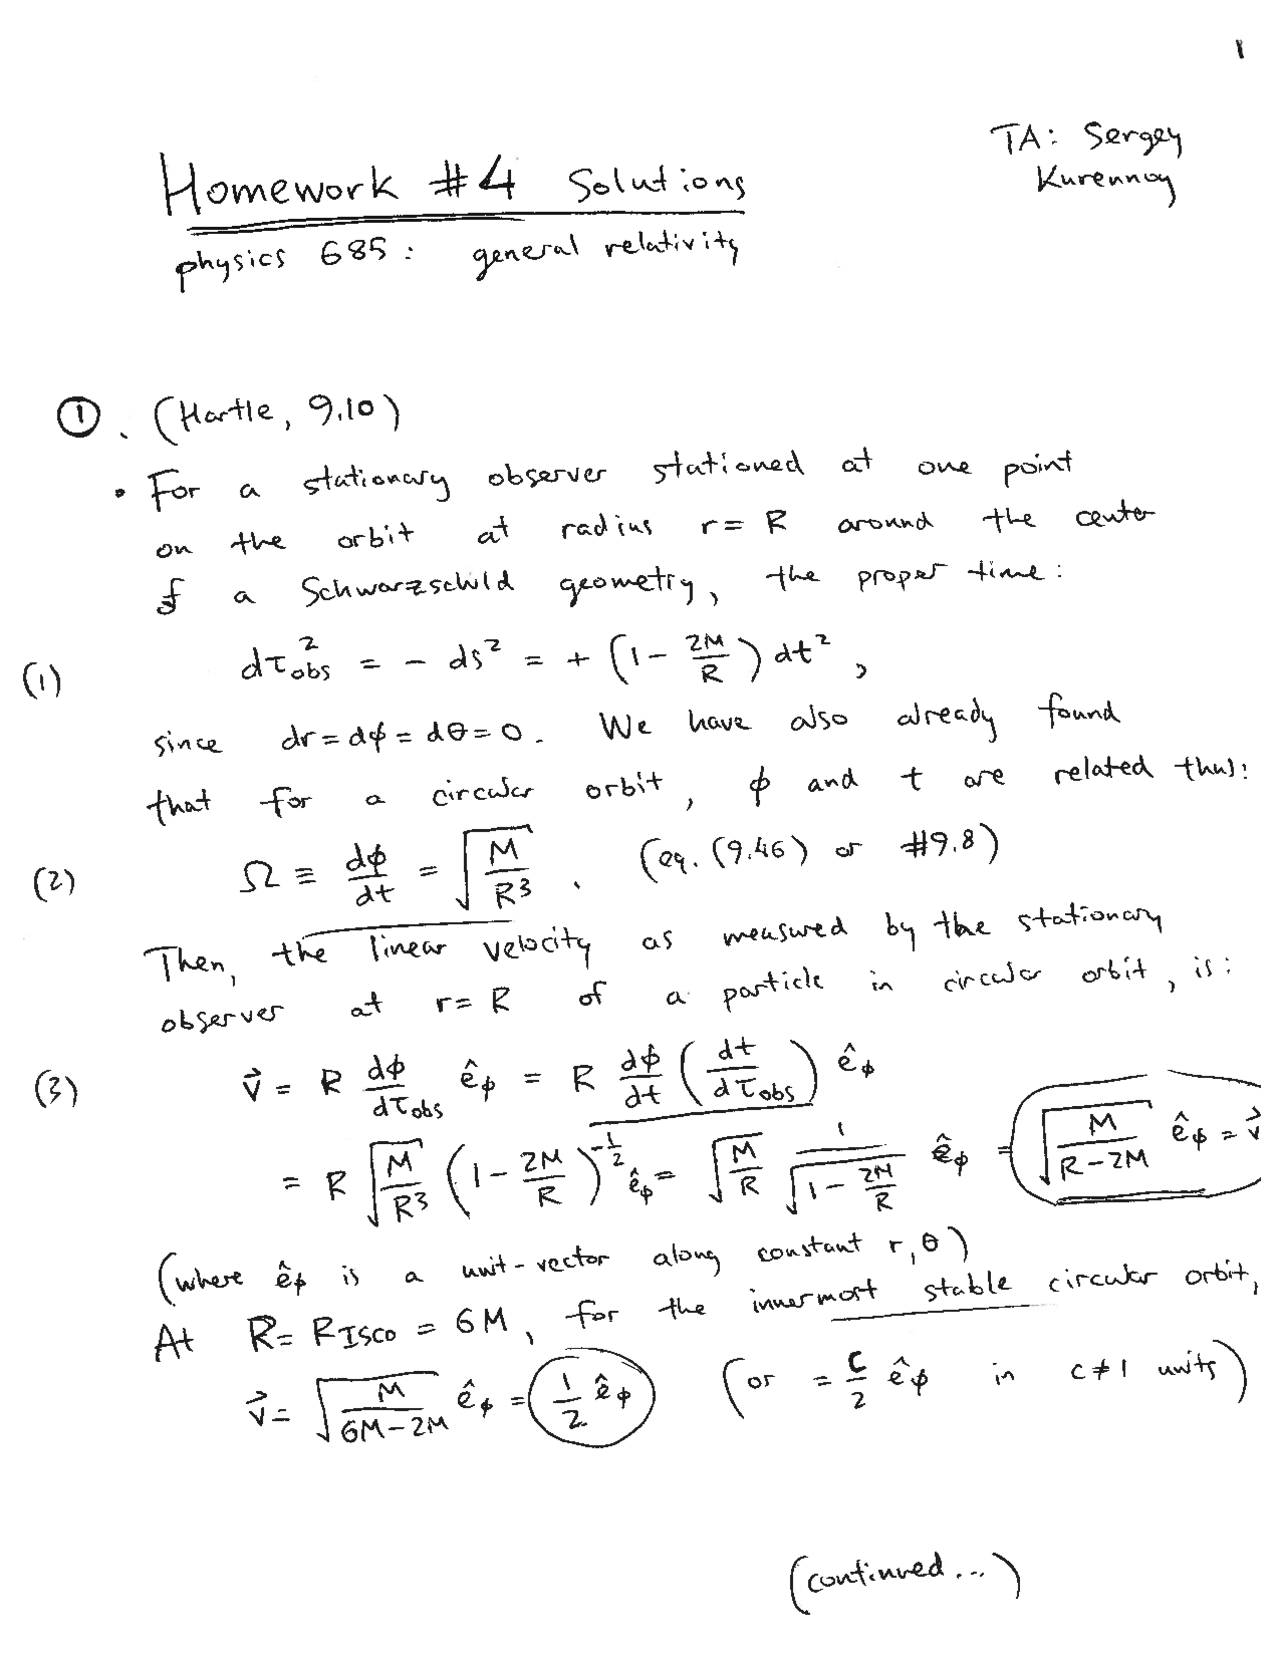 1
TA: Sergey
Kurennoy
Homework #4 Solutions
physics 685: general relativity
①. (Hartle, 9.10)
• For a stationary observer stationed at one point
on the orbit at radius r = R around the center
of a Schwarzschild geometry, the proper time:
(1) dτ_obs² = - ds² = + (1 - 2M/R) dt²,
since dr = dφ = dθ = 0. We have also already found
that for a circular orbit, φ and t are related thus:
(2) Ω ≡ dφ/dt = √(M/R³). (eq. (9.46) or #9.8)
Then, the linear velocity as measured by the stationary
observer at r = R of a particle in circular orbit, is:
(3) v⃗ = R dφ/dτ_obs ê_φ = R dφ/dt (dt/dτ_obs) ê_φ
= R √(M/R³) (1 - 2M/R)^(-1/2) ê_φ = √(M/R) 1/√(1 - 2M/R) ê_φ = √(M/(R-2M)) ê_φ = v⃗
(where ê_φ is a unit-vector along constant r, θ)
At R = R_ISCO = 6M, for the innermost stable circular orbit,
v⃗ = √(M/(6M-2M)) ê_φ = 1/2 ê_φ (or = c/2 ê_φ in c≠1 units)
(continued...)